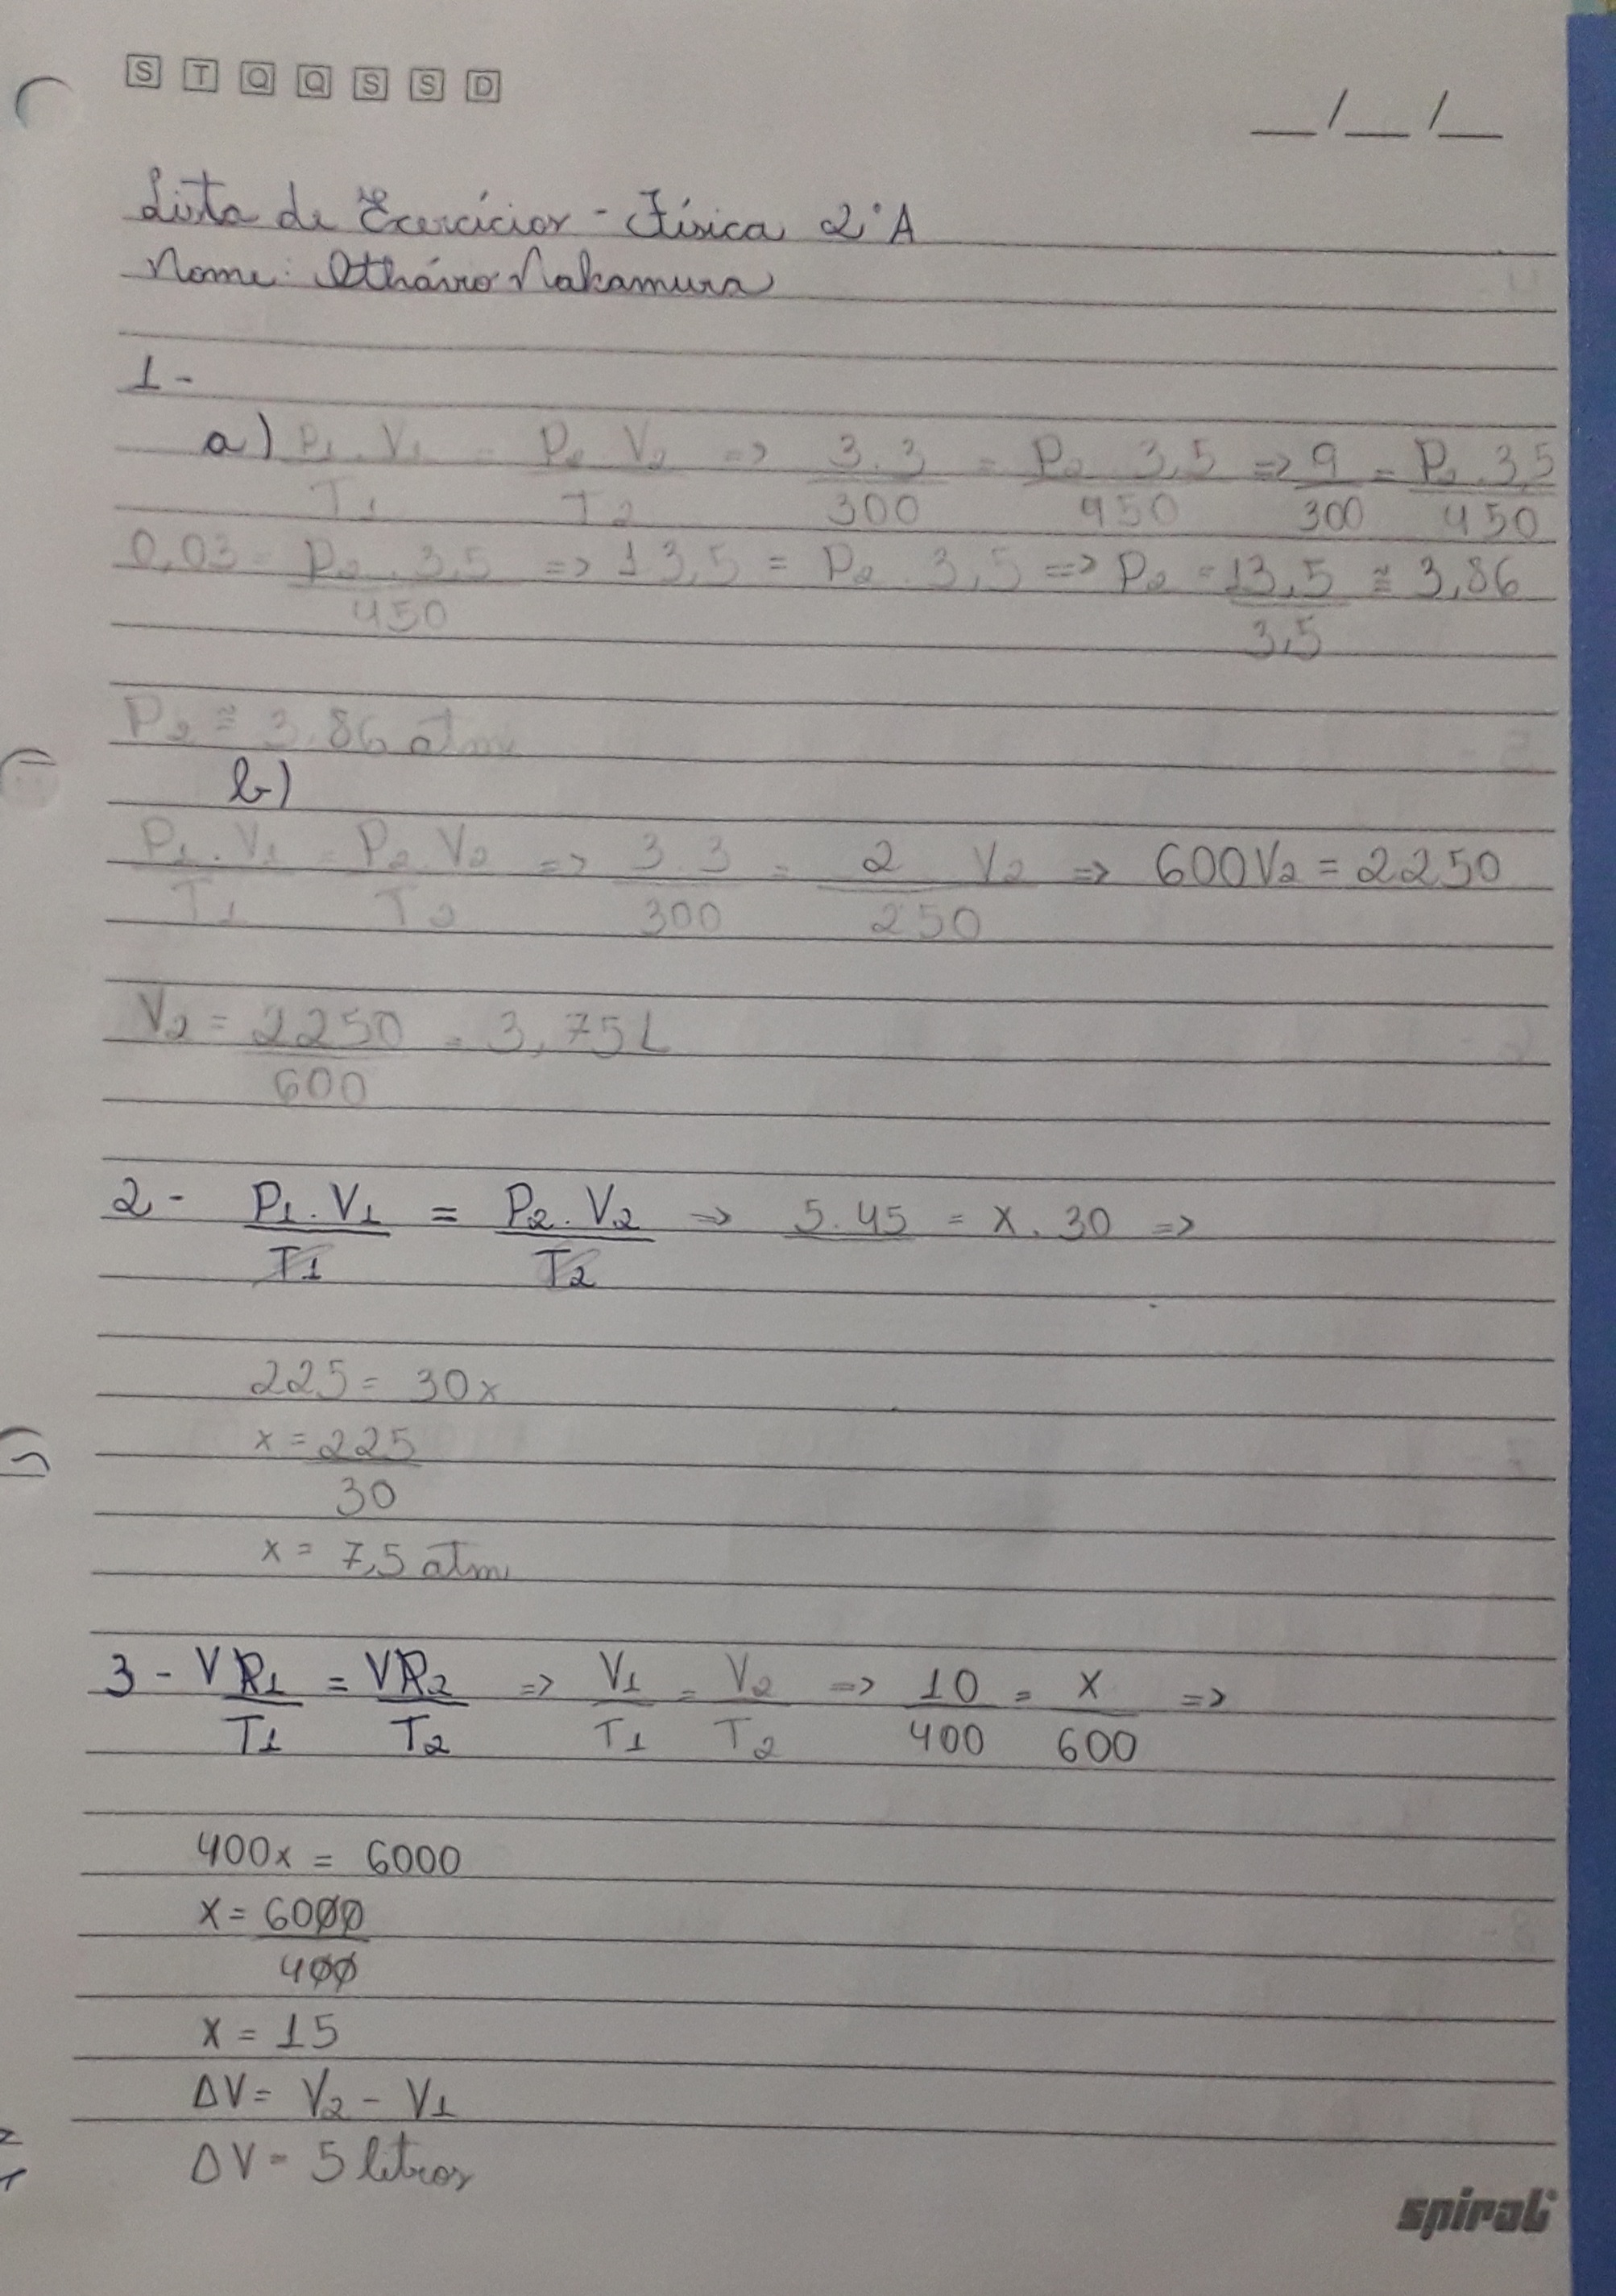 S T Q Q S S D
__/__/__
Lista de Exercícios - Física 2°A
Nome: Nakamura
1-
a) P1.V1/T1 = P2.V2/T2 => 3.3/300 = P2.3,5/450 => 9/300 = P2.3,5/450
0,03 = P2.3,5/450 => 13,5 = P2.3,5 => P2 = 13,5/3,5 ≅ 3,86
P2 ≅ 3,86 atm
b)
P1.V1/T1 = P2.V2/T2 => 3.3/300 = 2 V2/250 => 600V2 = 2250
V2 = 2250/600 = 3,75L
2- P1.V1/T1 = P2.V2/T2 => 5.45 = x.30 =>
225 = 30x
x = 225/30
x = 7,5 atm
3- VP1/T1 = VP2/T2 => V1/T1 = V2/T2 => 10/400 = x/600 =>
400x = 6000
x = 6000/400
x = 15
ΔV = V2 - V1
ΔV = 5 litros
spiral